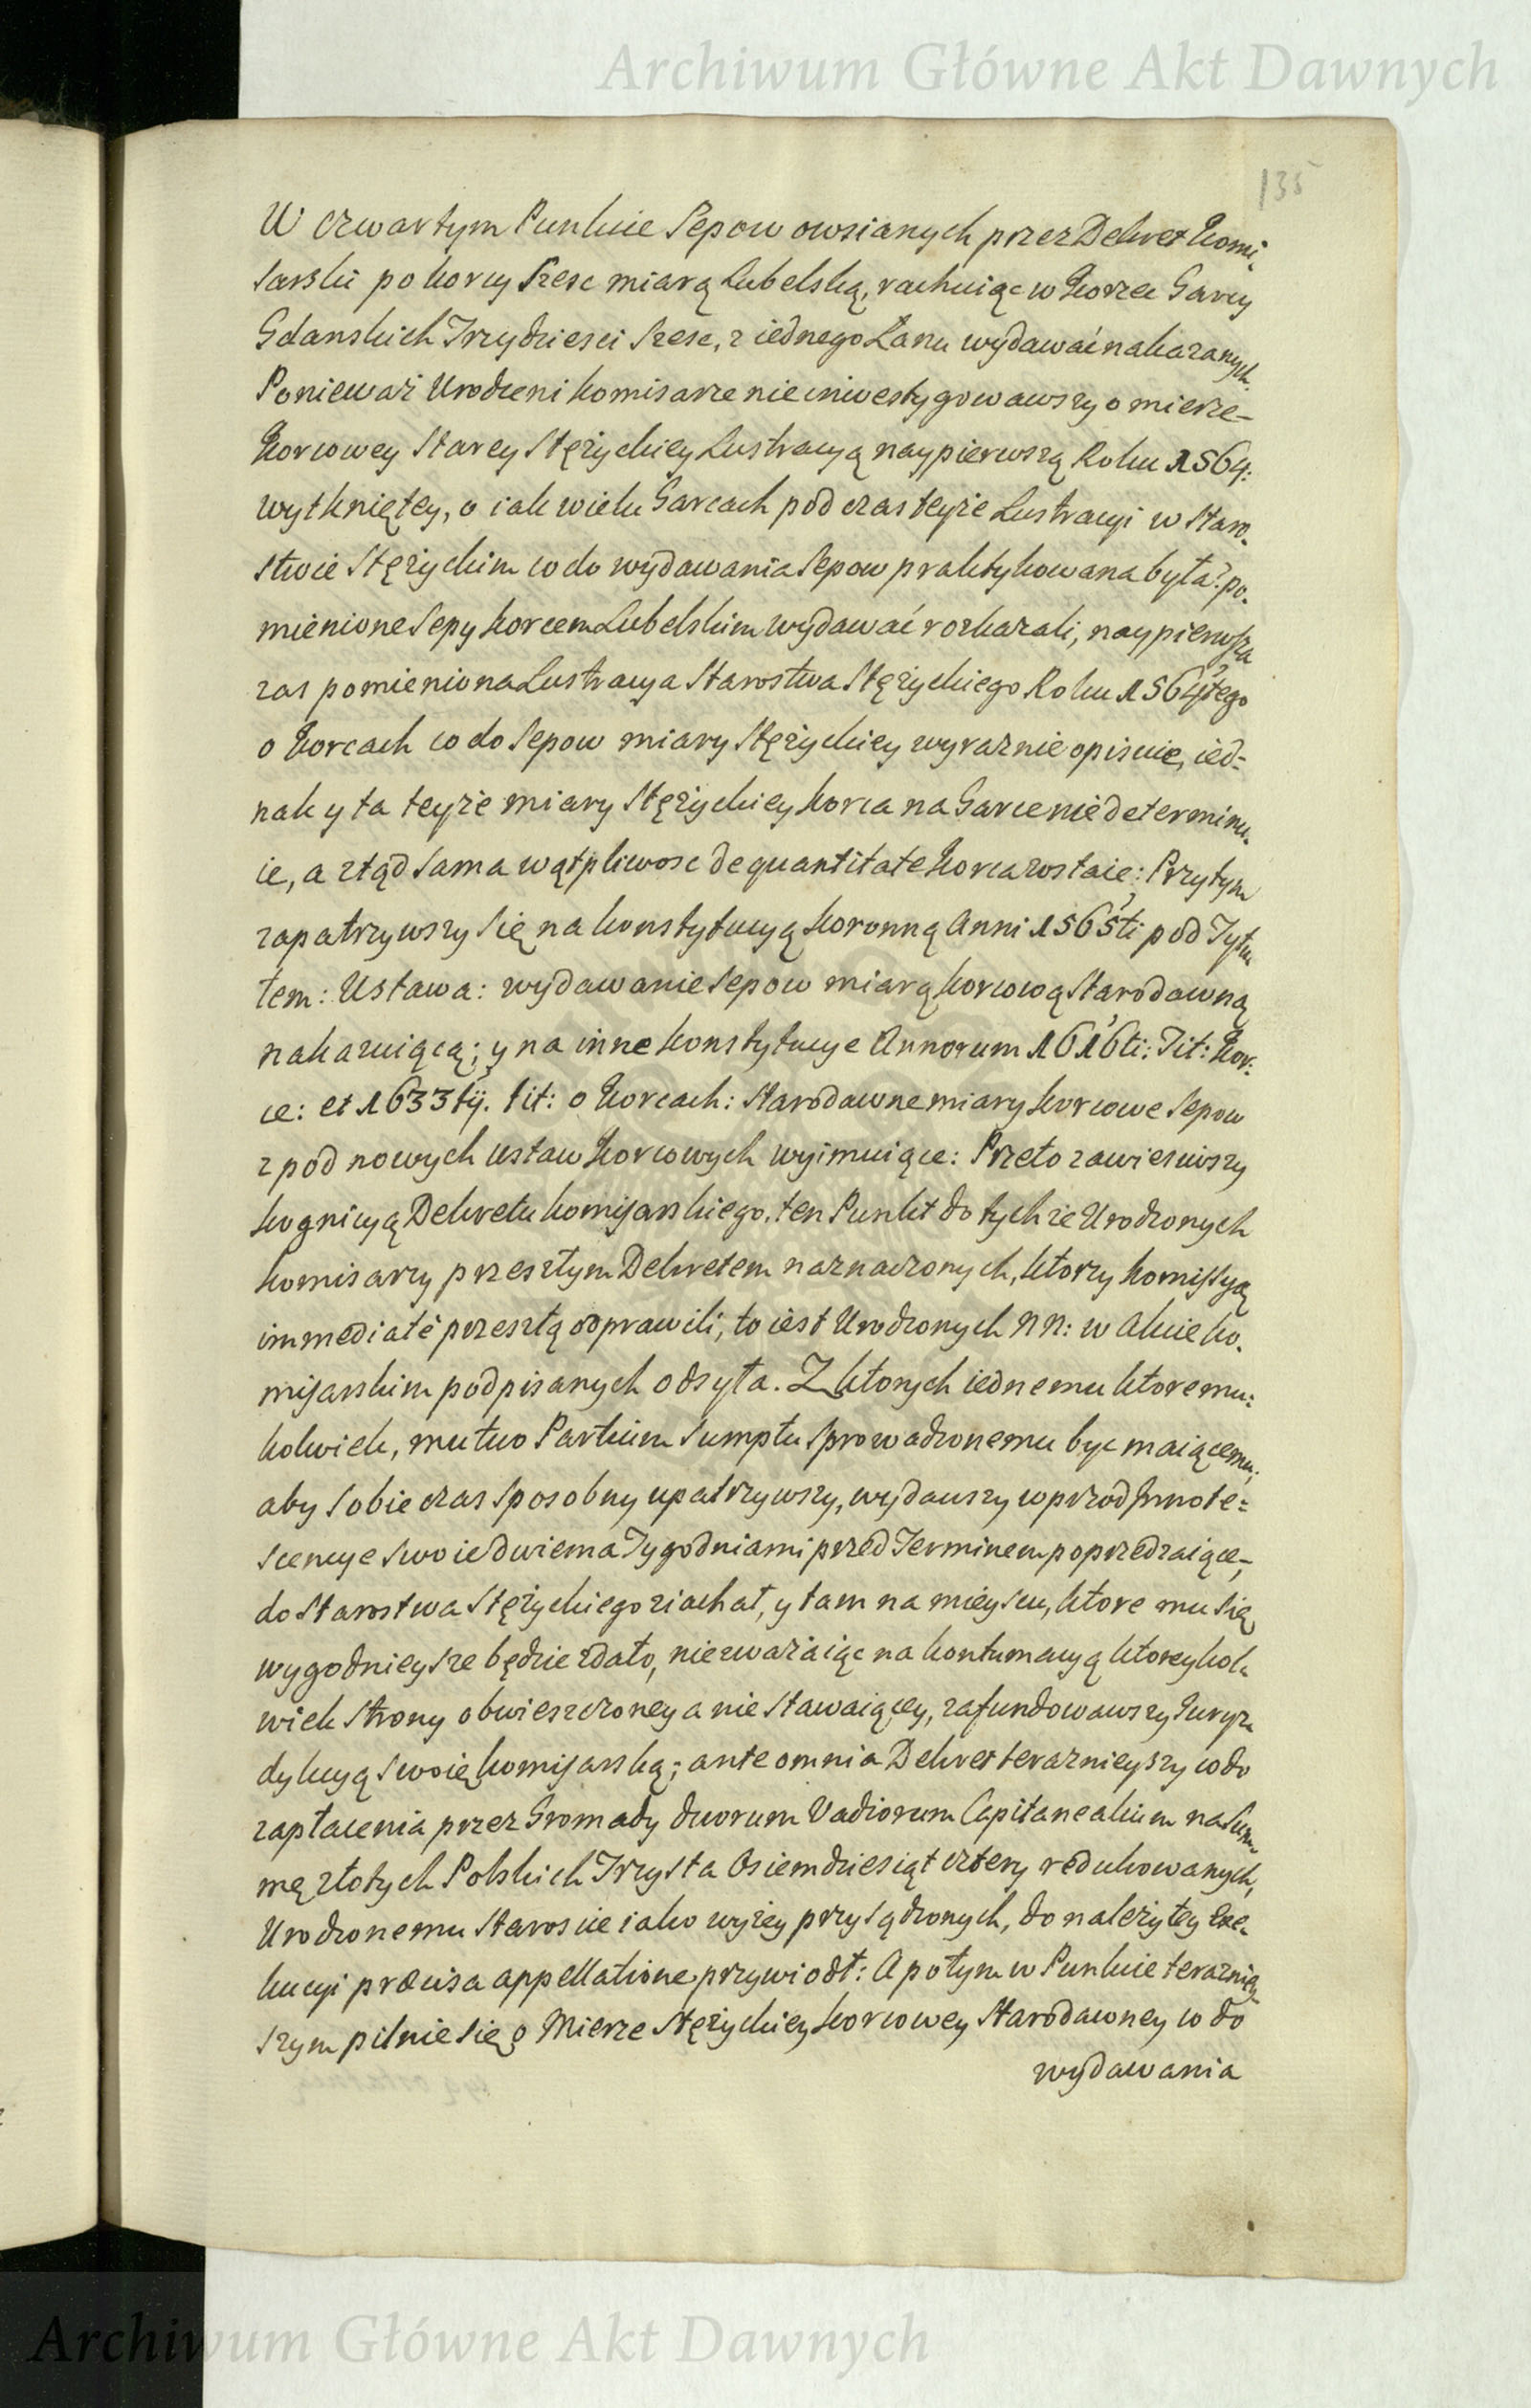 Archiwum Główne Akt Dawnych
135
W czwartym Punkcie Sepow owsianych przez Dekret Komi-
sarski po korcy szesc miarą Lubelską, rachuiąc w Korzec Garcy
Gdanskich Trzydziesci szesc, z iednego Łanu wydawać nakazanych.
Ponieważ Urodzeni Komisarze nie inwestygowawszy o mierze-
Korcowey Starey Stężyckiey Lustracyą naypierwszą Roku 1564:
wytkniętey, o iak wielu Garcach pod czas teyże Lustracyi w Staro-
stwie Stężyckim co do wydawania Sepow praktykowana była? po-
mienione Sepy korcem Lubelskim wydawać rozkazali, naypierwsza
zas pomieniona Lustracya Starostwa Stężyckiego Roku 1564tego
o Korcach co do Sepow miary Stężyckiey wyraznie opisuie, ied-
nak y ta teyże miary Stężyckiey korca na Garce nie determinu-
ie, a ztąd sama wątpliwosc de quantitate Korca zostaie: Przytym
zapatrzywszy się na konstytucyą koronną Anni 1565ti pod Tytu
łem: Ustawa: wydawanie Sepow miarą korcową Starodawną
nakazuiącą; y na inne konstytucye Annorum 1616ti: Tit: Kor-
ce: et 1633tÿ. tit: o Korcach: Starodawne miary korcowe Sepow
z pod nowych ustaw Korcowych wyimuiące: Przeto zawiesiwszy
kognicyą Dekretu komisarskiego, ten Punkt do tychże Urodzonych
Komisarzy przeszłym Dekretem naznaczonych, ktorzy komissyą
immediatè przeszłą odprawili, to iest Urodzonych NN: w Akcie ko-
misarskim podpisanych odsyła. Z ktorych iednemu ktoremu-
kolwiek, mutuo Partium sumptu sprowadzonemu byc maiącemu,
aby sobie czas sposobny upatrzywszy, wydawszy wprzod Innote-
scencye swoie dwiema Tygodniami przed Terminem poprzedzaiące,
do Starostwa Stężyckiego ziachał, y tam na mieyscu, ktore mu się
wygodnieysze będzie zdało, nie zważaiąc na kontumacyą ktoreykol-
wiek strony obwieszczoney a nie stawaiącey, zafundowawszy Juryz-
dykcyą swoię komisarską; ante omnia Dekret terazneyszy co do
zapłacenia przez Gromady duorum Vadiorum Capitanealium na Sum-
mę złotych Polskich Trzysta Osiemdziesiąt cztery redukowanych,
Urodzonemu Staroscie iako wyżey przysądzonych, do należytey Exe-
kucyi præcisa appellatione przywiodł: A potym w Punkcie terazniey
szym pilnie się o Mierze Stężyckiey korcowey Starodawney co do
wydawania
Archiwum Główne Akt Dawnych